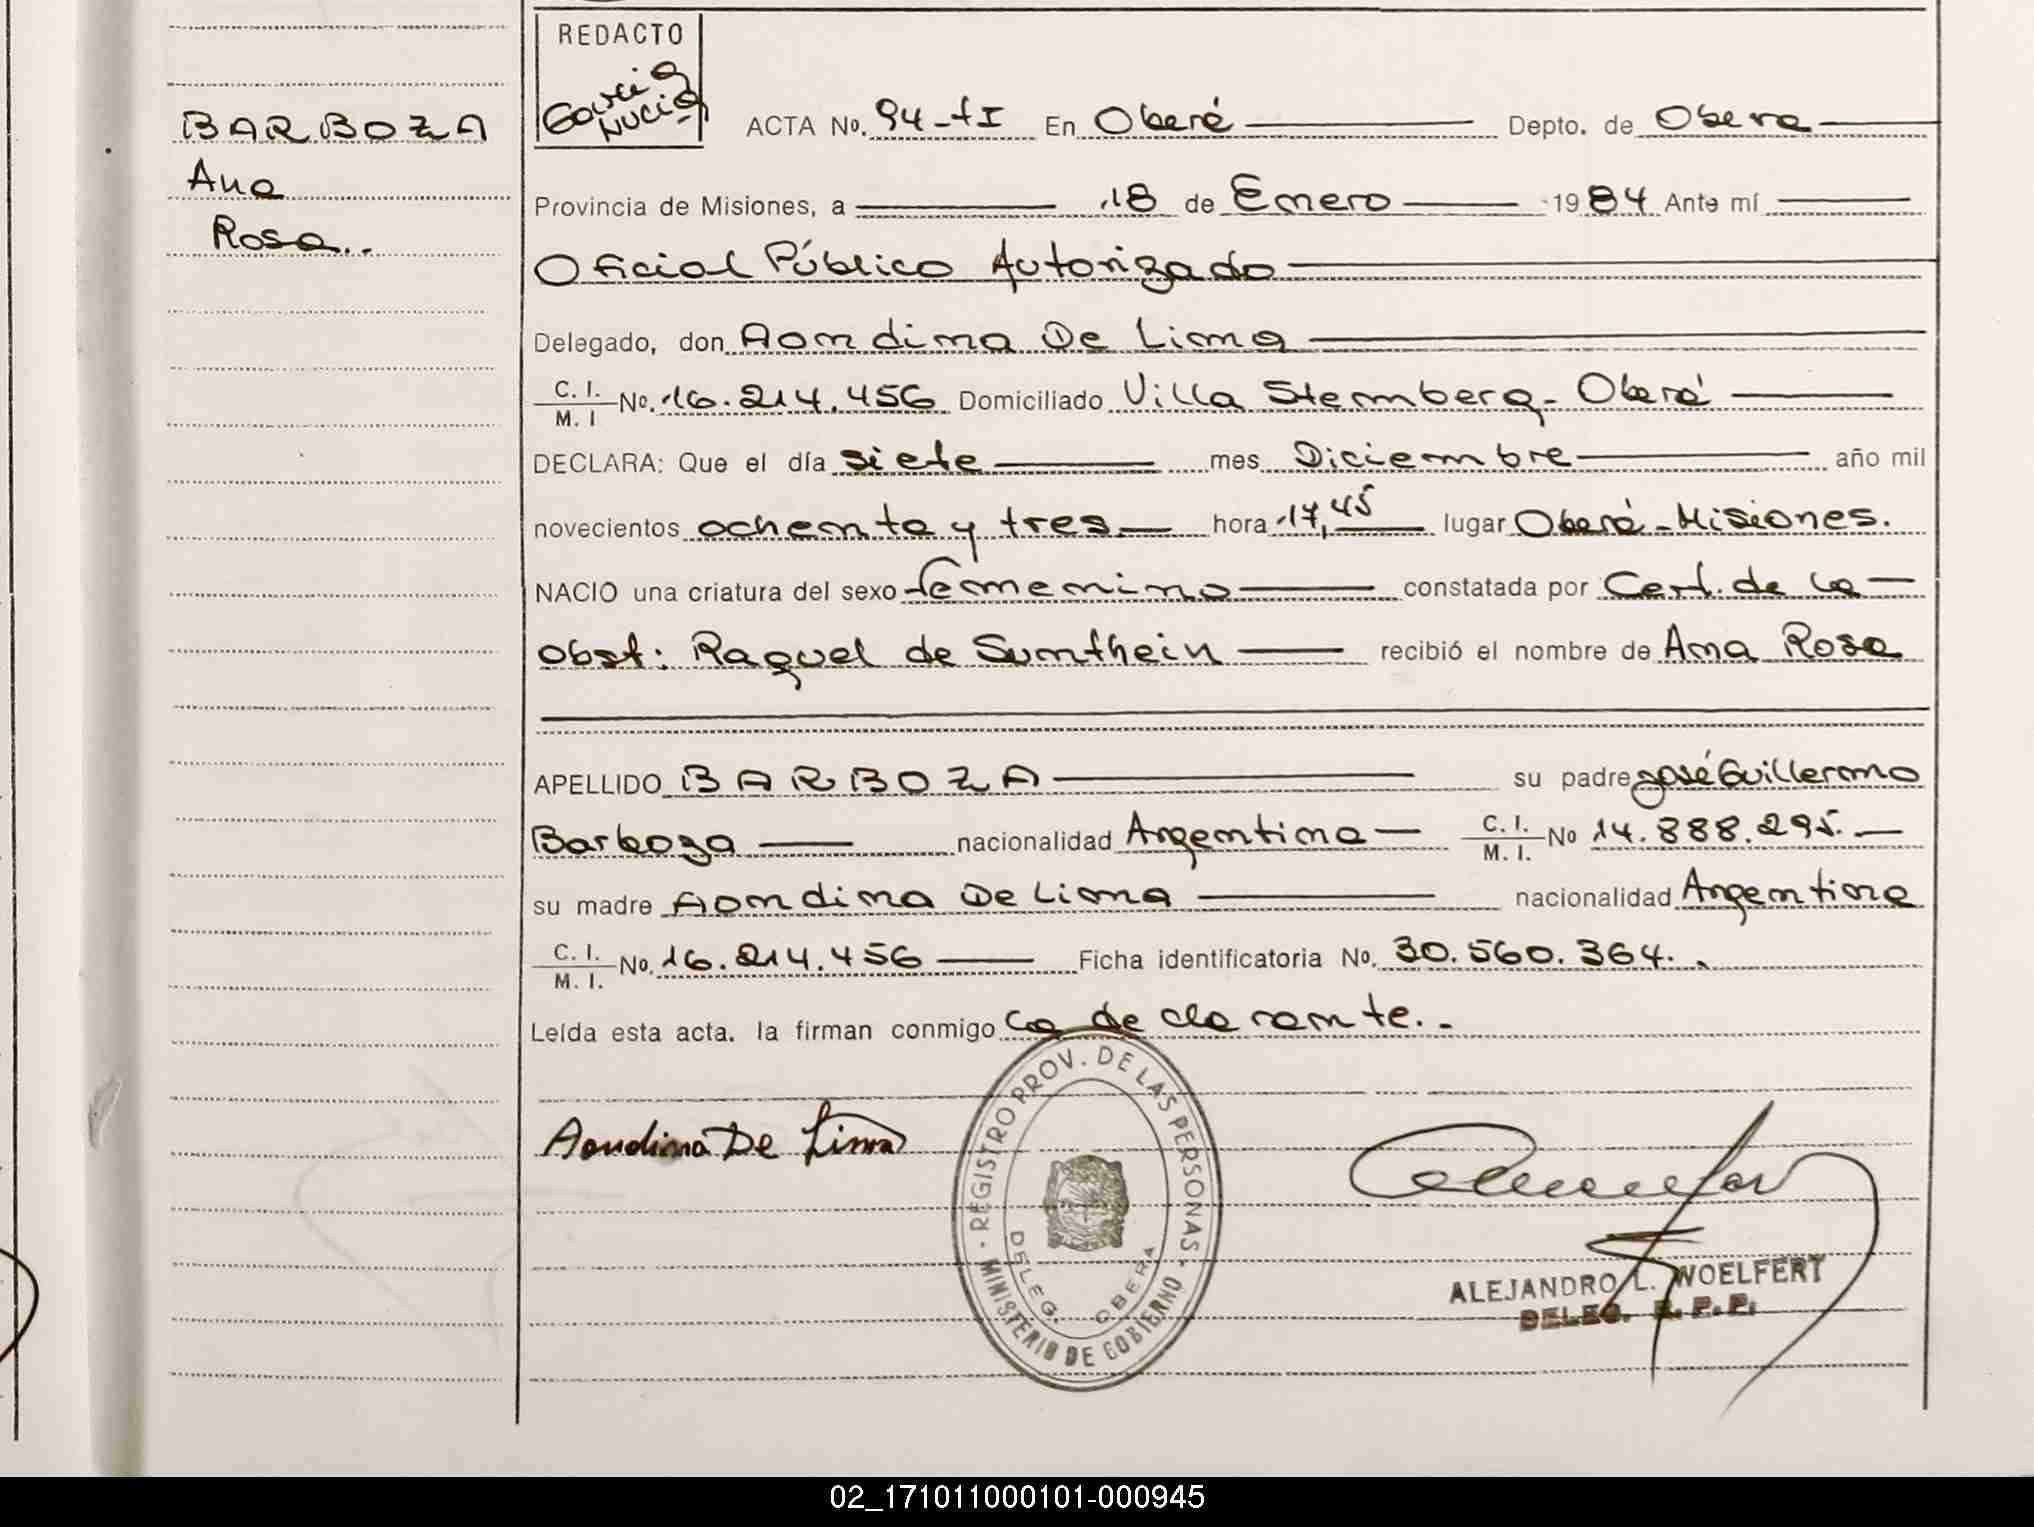 BARBOZA
Ana
Rosa..
REDACTO
Garcia
Nucia
ACTA No. 94-tI En Oberá Depto. de Obera
Provincia de Misiones, a 18 de Enero 1984 Ante mí
Oficial Público Autorizado
Delegado, don Aondina De Lima
C. I. / M. I No. 16.214.456 Domiciliado Villa Stemberg - Oberá
DECLARA: Que el día siete mes Diciembre año mil
novecientos ochenta y tres hora 17,45 lugar Oberá - Misiones.
NACIO una criatura del sexo femenino constatada por Cert. de la
obst: Raquel de Sunthein recibió el nombre de Ana Rosa
APELLIDO BARBOZA su padre José Guillermo
Barboza nacionalidad Argentina C. I. / M. I. No 14.888.295.
su madre Aondina De Lima nacionalidad Argentina
C. I. / M. I. No. 16.214.456 Ficha identificatoria No. 30.560.364.
Leída esta acta. la firman conmigo la declarante.-
Aondina De Lima
REGISTRO PROV. DE LAS PERSONAS
MINISTERIO DE GOBIERNO
DELEG. OBERA
ALEJANDRO L. WOELFERT
DELEG. R. P. P.
02_171011000101-000945